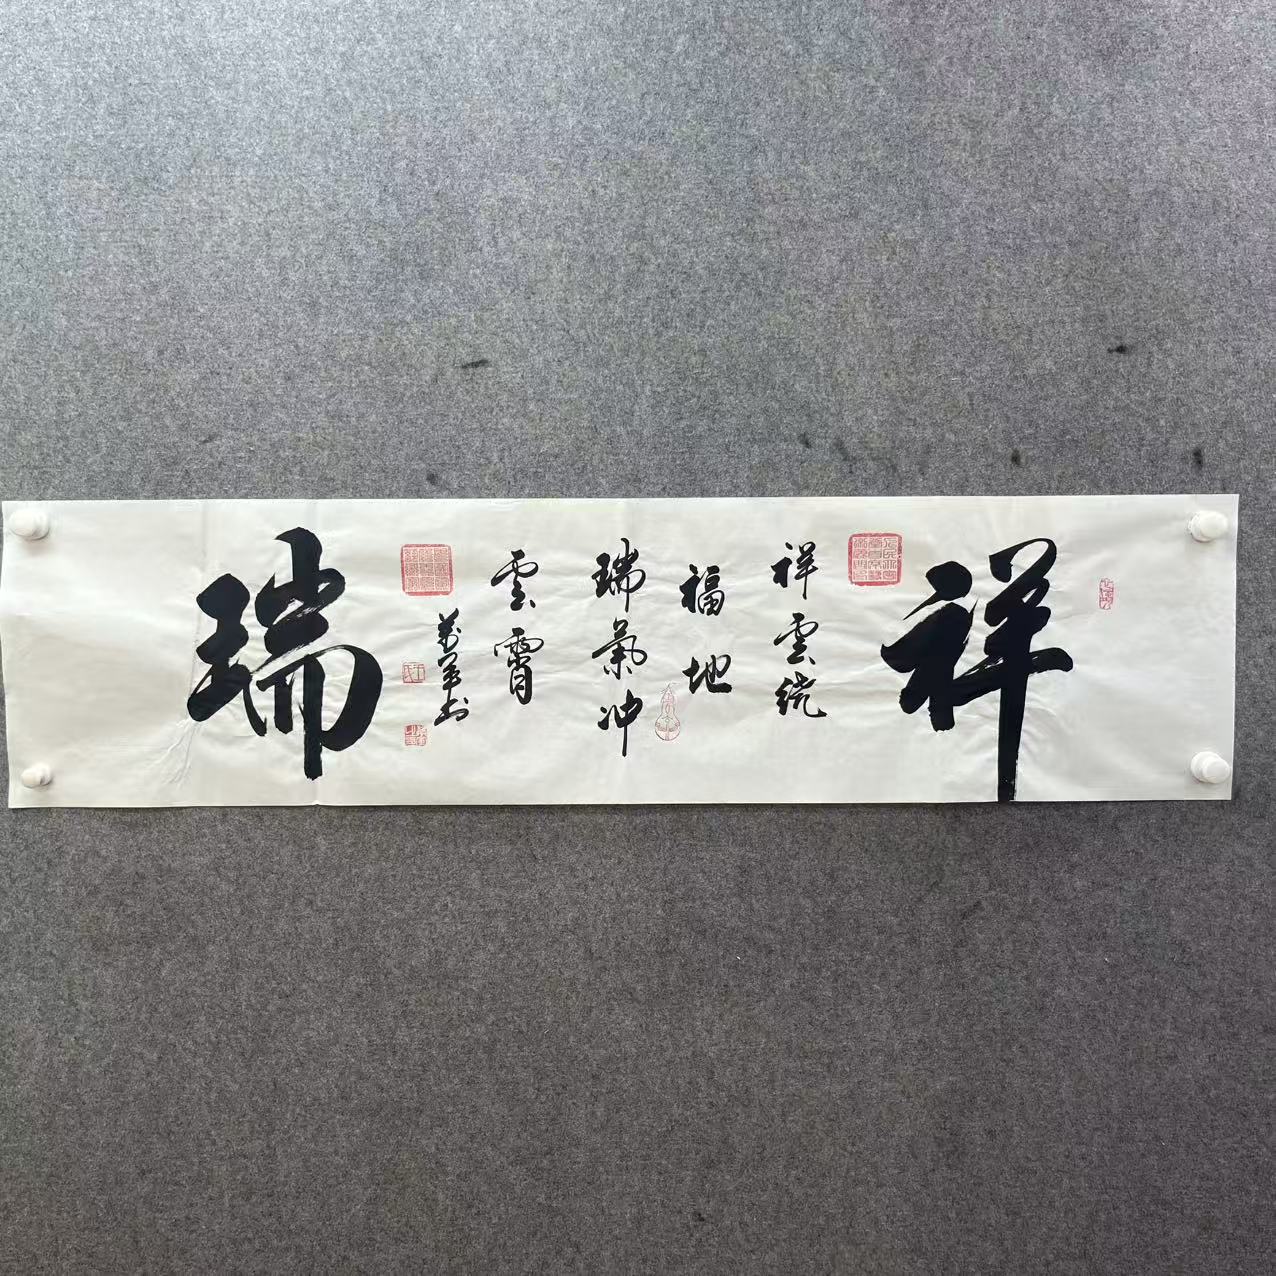 祥
祥雲繞
福地
瑞氣冲
雲霄
書
瑞